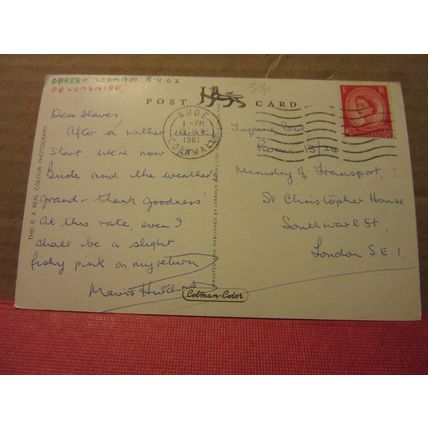 DOREEN 8.9.62
DEVONSHIRE
POST CARD
BUDE
1 - PM
1961
CORNWALL
E R
Dear Slaves,
After a rather
start we're now
Bude and the weather's
grand - thank goodness
At this rate, even I
shall be a slight
fishy pink on my return
Mavis
Typing Pool
Room
Ministry of Transport,
St Christopher House
Southwark St,
London S.E.1.
THIS IS A REAL COLOUR PHOTOGRAPH
PRINTED AND PUBLISHED BY JARROLD & SONS LTD.
Cotman-Color